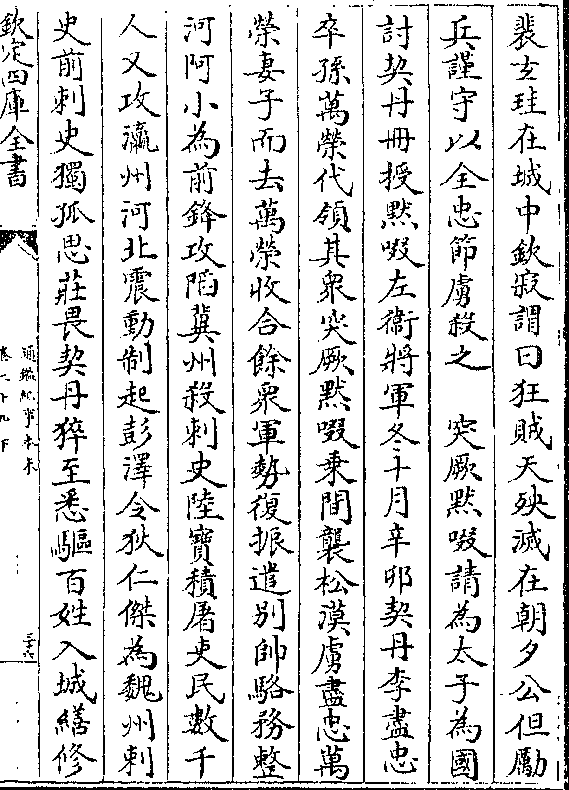 裴玄珪在城中欽寂謂曰狂賊天殃滅在朝夕公但勵
兵謹守以全忠節虜殺之　突厥黙啜請為太子為國
討契丹冊授黙啜左衞將軍冬十月辛卯契丹李盡忠
卒孫萬榮代領其衆突厥黙啜乗間襲松漠虜盡忠萬
榮妻子而去萬榮收合餘衆軍勢復振遣别帥駱務整
河阿小為前鋒攻陷冀州殺刺史陸寶積屠吏民數千
人又攻瀛州河北震動制起彭澤令狄仁傑為魏州刺
史前刺史獨孤思莊畏契丹猝至悉驅百姓入城繕修
欽定四庫全書
通鑑紀事本末
卷二十九下
三十六